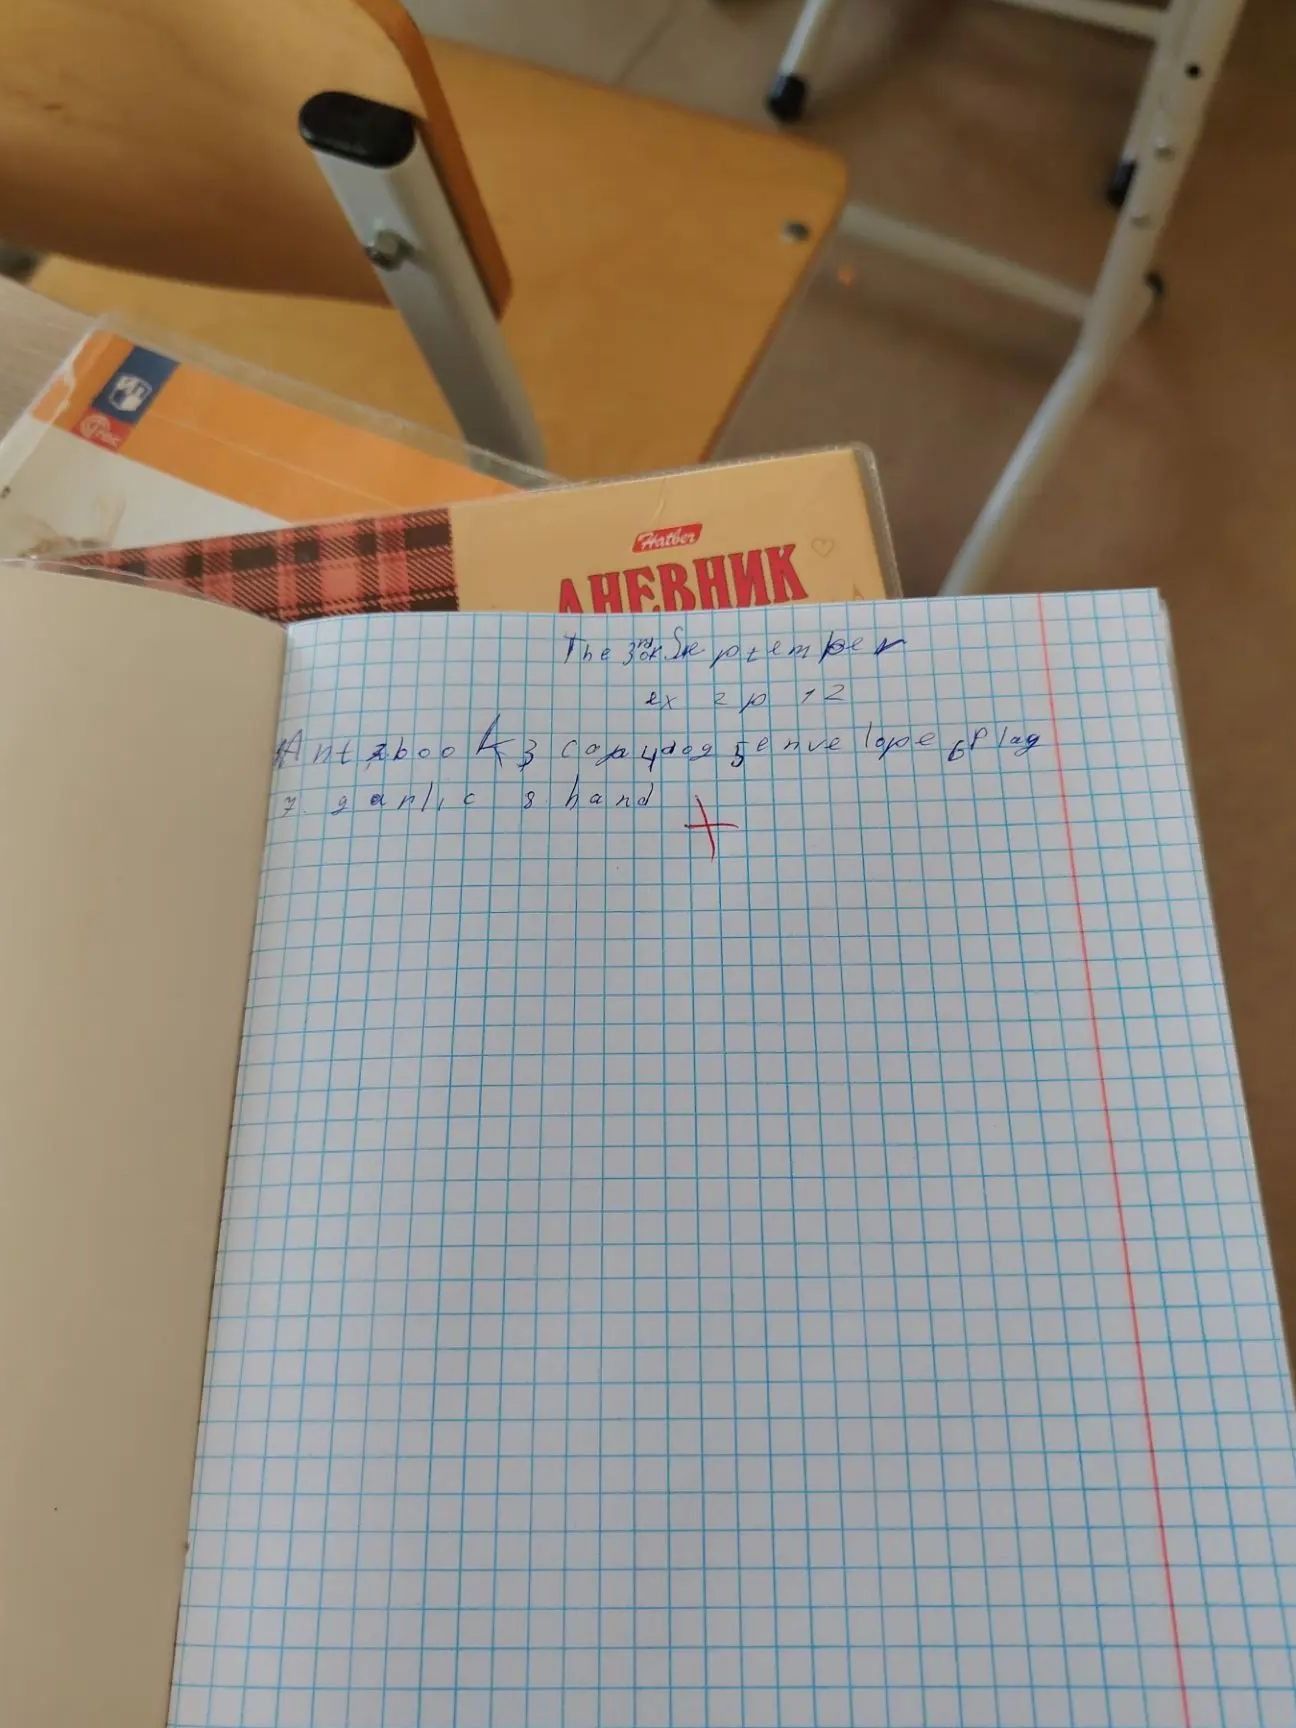 Hatber
ДНЕВНИК
The 3rd September
ex 2 p 12
1Ant 2book 3 cap 4dog 5envelope 6Flag
7. garlic 8. hand